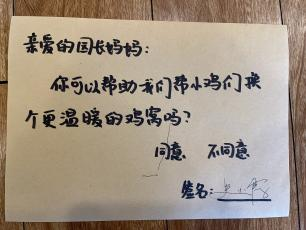 亲爱的园长妈妈：
你可以帮助我们帮小鸡们换
个更温暖的鸡窝吗？
同意 不同意
签名：